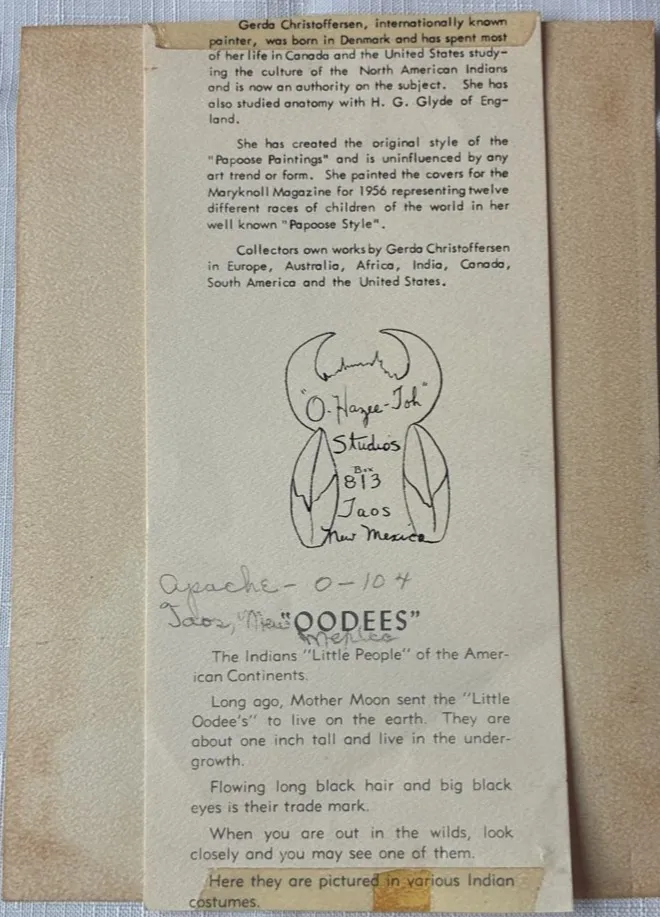 Gerda Christoffersen, internationally known
painter, was born in Denmark and has spent most
of her life in Canada and the United States study-
ing the culture of the North American Indians
and is now an authority on the subject. She has
also studied anatomy with H. G. Glyde of Eng-
land.
She has created the original style of the
"Papoose Paintings" and is uninfluenced by any
art trend or form. She painted the covers for the
Maryknoll Magazine for 1956 representing twelve
different races of children of the world in her
well known "Papoose Style".
Collectors own works by Gerda Christoffersen
in Europe, Australia, Africa, India, Canada,
South America and the United States.
"O-Hazee-Toh"
Studios
Box
813
Taos
New Mexico
Apache - O-104
Taos, New
"OODEES"
Mexico
The Indians "Little People" of the Amer-
ican Continents.
Long ago, Mother Moon sent the "Little
Oodee's" to live on the earth. They are
about one inch tall and live in the under-
growth.
Flowing long black hair and big black
eyes is their trade mark.
When you are out in the wilds, look
closely and you may see one of them.
Here they are pictured in various Indian
costumes.